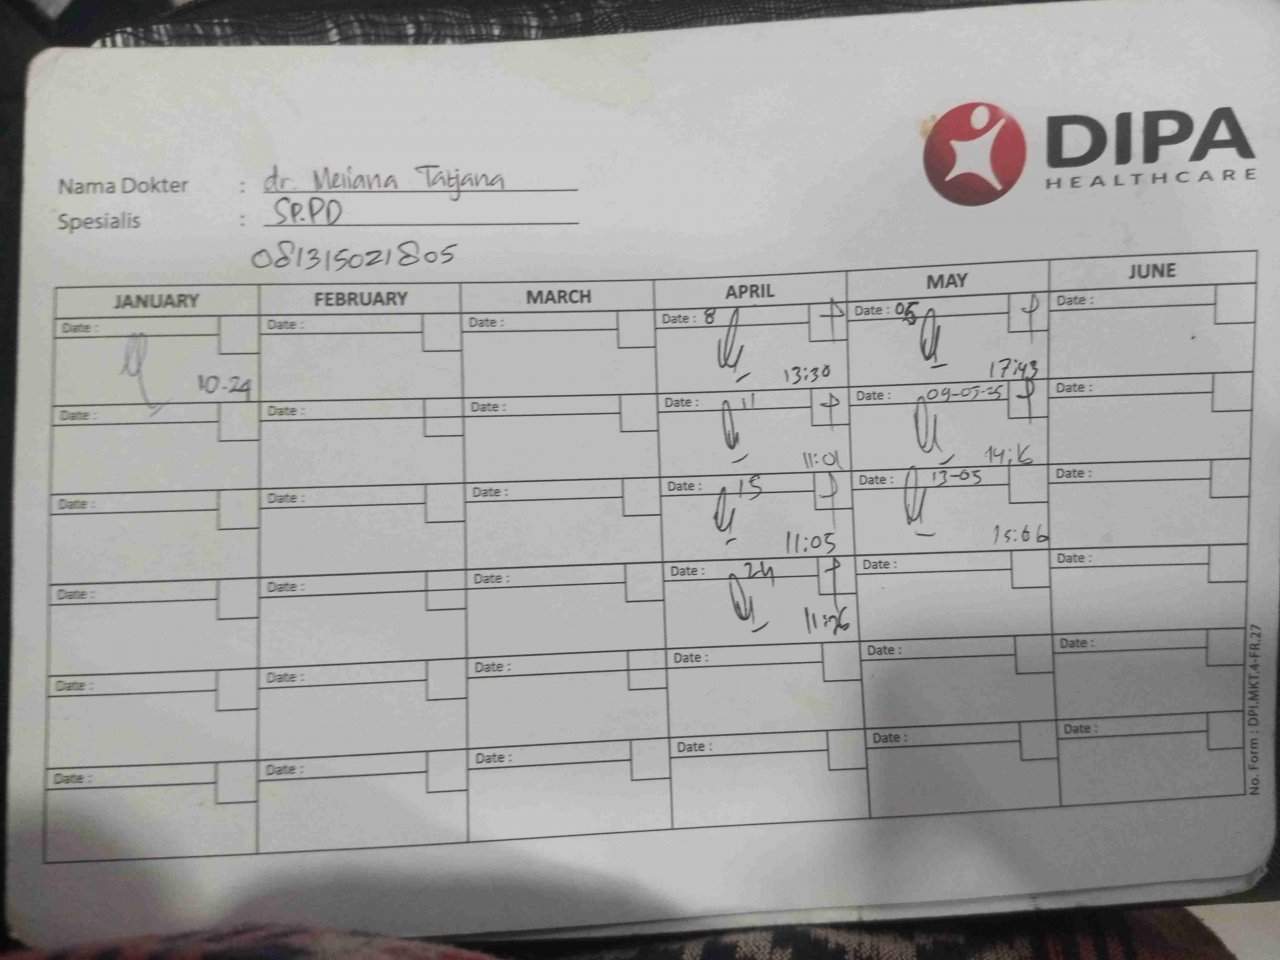 DIPA
HEALTHCARE
Nama Dokter : dr. Meliana Tatjana
Spesialis : SP.PD
081315021805
JANUARY FEBRUARY MARCH APRIL MAY JUNE
Date : Date : Date : Date : 8 Date : 05 Date :
10-24 13:30 17:43
Date : Date : Date : Date : 11 Date : 09-05-25 Date :
11:01 14:16
Date : Date : Date : Date : 15 Date : 13-05 Date :
11:05 15:06
Date : Date : Date : Date : 24 Date : Date :
11:26
Date : Date : Date : Date : Date : Date :
Date : Date : Date : Date : Date : Date :
No. Form : DPI.MKT.4-FR.27